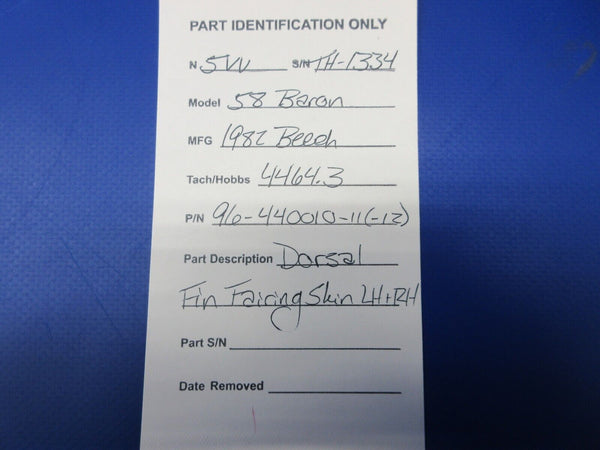 PART IDENTIFICATION ONLY
N 5VV S/N TH-1334
Model 58 Baron
MFG 1982 Beech
Tach/Hobbs 4464.3
P/N 96-440010-11(-12)
Part Description Dorsal
Fin Fairing Skin LH+RH
Part S/N
Date Removed